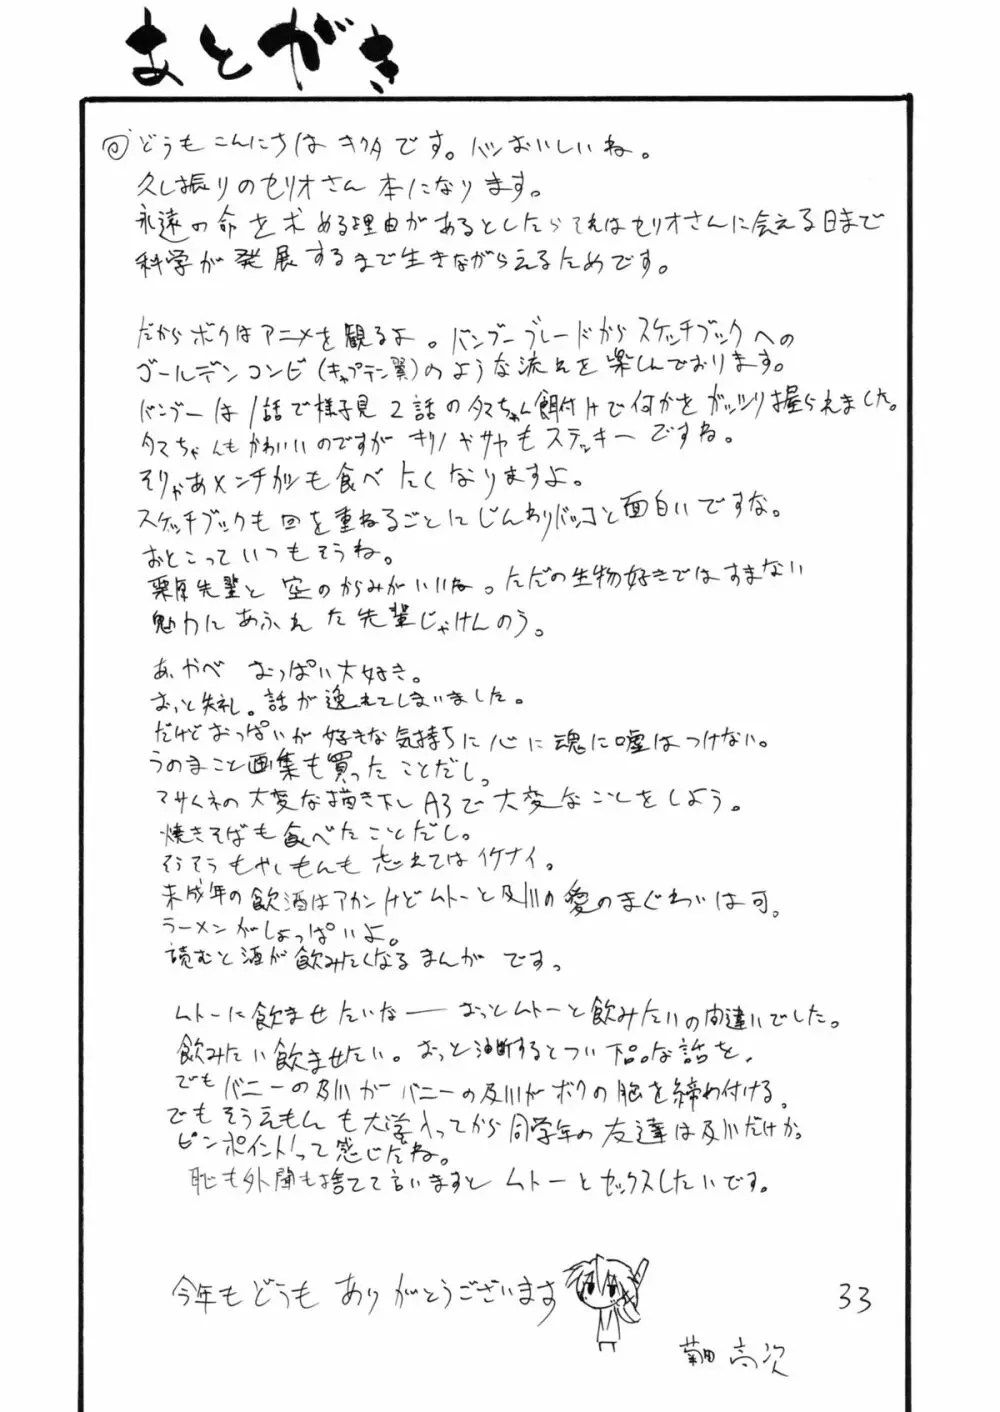 あとがき
どうもこんにちはキクタです。パンおいしいね。
久し振りのセリオさん本になります。
永遠の命を求める理由があるとしたらそれはセリオさんに会える日まで
科学が発展するまで生きながらえるためです。
だからボクはアニメを観るよ。バンブーブレードからスケッチブックへの
ゴールデンコンビ(キャプテン翼)のような流れを楽しんでおります。
バンブーは1話で様子見2話のタマちゃん餌付けで何かをガッツリ握られました。
タマちゃんもかわいいのですがキリノやサヤもステッキーですね。
そりゃあメンチカツも食べたくなりますよ。
スケッチブックも回を重ねるごとにじんわりバッコと面白いですな。
おとこっていつもそうね。
栗原先輩と空のからみがいいね。ただの生物好きではすまない
魅力にあふれた先輩じゃけんのう。
あ、やべ おっぱい大好き。
おっと失礼。話が逸れてしまいました。
だけどおっぱいが好きな気持ちに心に魂に嘘はつけない。
うのまこと画集も買ったことだし。
マサムネの大変な描き下しA3で大変なことをしよう。
焼きそばも食べたことだし。
そうそうもやしもんも忘れてはイケナイ。
未成年の飲酒はアカンけどムトーと及川の愛のまぐわいは可。
ラーメンがしょっぱいよ。
読むと酒が飲みたくなるまんがです。
ムトーに飲ませたいなーおっとムトーと飲みたいの間違いでした。
飲みたい飲ませたい。おっと油断するとつい下品な話を。
でもバニーの及川がバニーの及川がボクの胸を締め付ける。
でもそうえもんも大学入ってから同学年の友達は及川だけか。
ピンポイントって感じだね。
恥も外聞も捨てて言いますとムトーとセックスしたいです。
今年もどうもありがとうございます
33
菊田高次